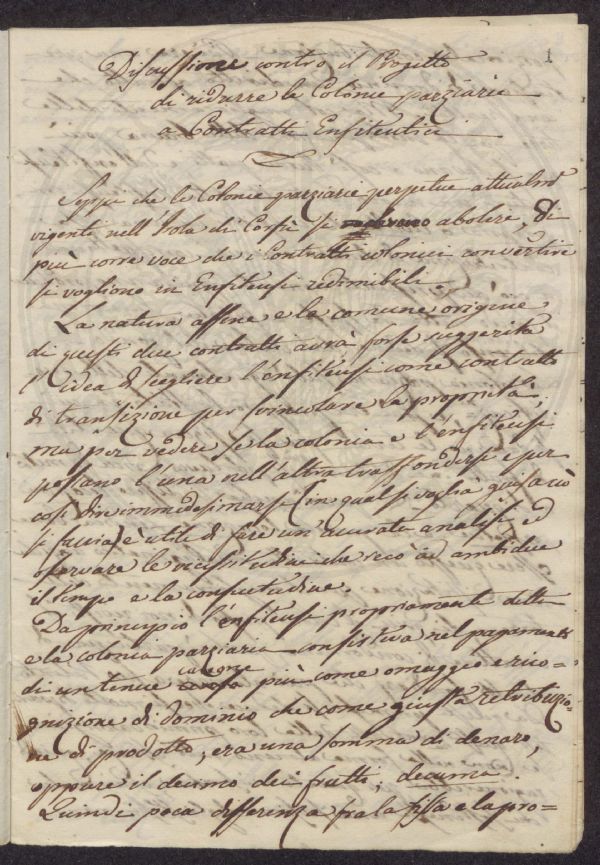 1
Discussione contro il Progetto
di ridurre le Colonie parziarie
a Contratti Enfiteutici
Seppi che le Colonie parziarie perpetue attualmte
vigenti nell'Isola di Corfù si abolire, di
più corre voce che i Contratti colonici convertire
si vogliono in Enfiteusi redimibili.
La natura affine e la comune origine
di questi due contratti avrà forse suggerita
l'idea di scegliere l'enfiteusi come contratto
di transizione per svincolare la proprietà,
ma per vedere se la colonia e l'enfiteusi
possano l'una nell'altra trasfondersi e per
così dire immedesimarsi (in qualsivoglia guisa ciò
si faccia) è utile di fare un'accurata analisi, ed
osservare le vicissitudini che recò ad ambidue
il tempo e la consuetudine.
Da principio l'enfiteusi propriamente detta
e la colonia parziaria consisteva nel pagamento
di un tenue canone più come omaggio e rico=
gnizione di dominio che come giusta retribuzio=
ne di prodotto, era una somma di denaro,
oppure il decimo dei frutti, decima.
Quindi poca differenza fra la fissa e la pro=